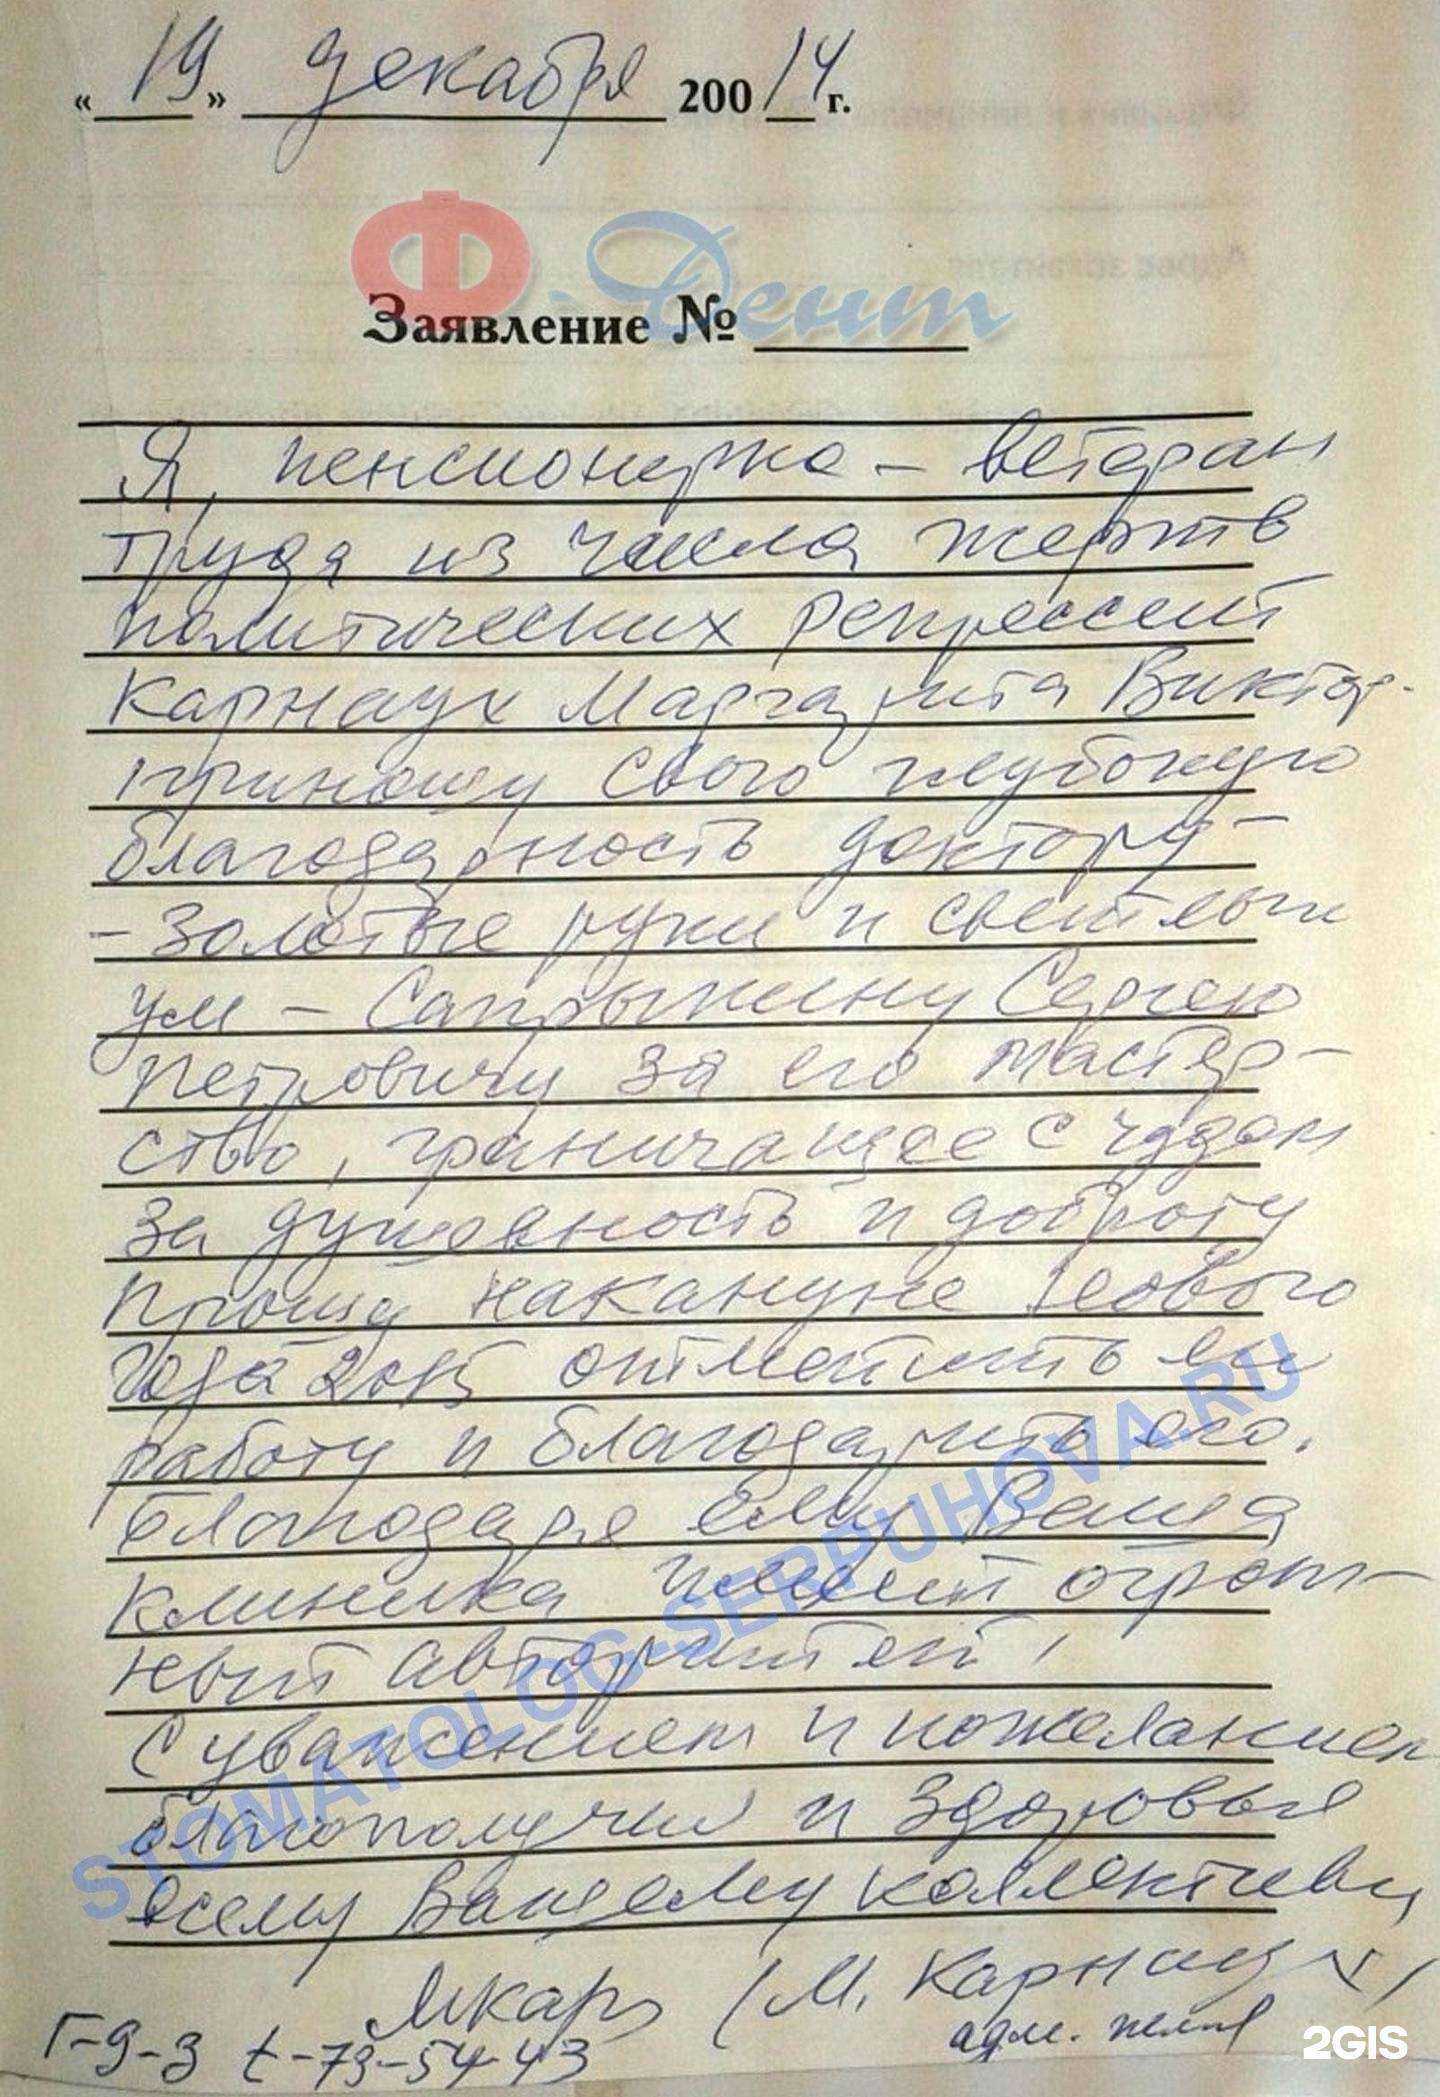 « 19 » декабря 200 14 г.
Ф-Дент
Заявление №
Я, пенсионерка - ветеран
труда из числа жертв
политических репрессий
Карнаух Маргарита Виктор.
приношу свою глубокую
благодарность доктору -
- золотые руки и светлый
ум - Сапрыкину Сергею
Петровичу за его мастер-
ство, граничащее с чудом
за душевность и доброту
Прошу накануне Нового
года 2015 отметить его
работу и благодарить его.
Благодаря ему Ваша
клиника имеет огром-
ный авторитет!
С уважением и пожеланием
благополучия и здоровья
всему Вашему коллективу
(М. Карнаух)
t-73-54-43
адм.
STOMATOLOG-SERPUHOVA.RU
2GIS